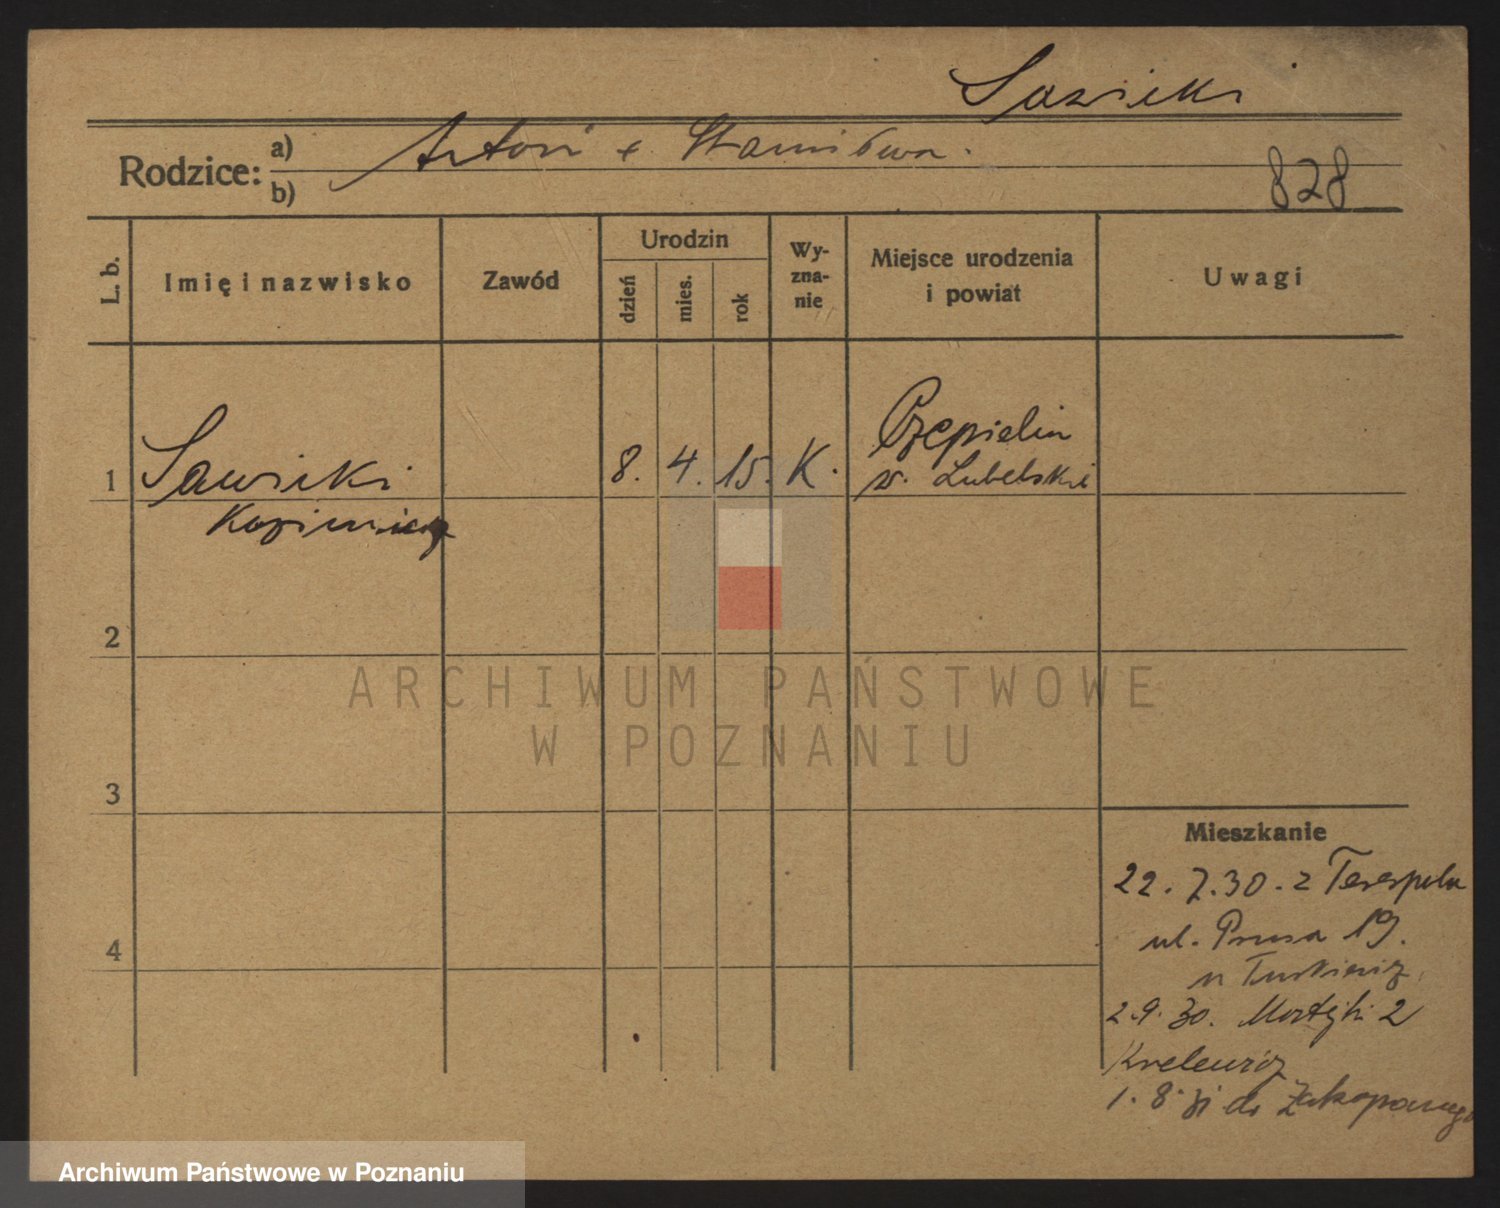 Sawicki
Rodzice: a) Antoni i Stanisława.
b)
828
L. b.
Imię i nazwisko
Zawód
Urodzin
dzień
mies.
rok
Wy-
zna-
nie
Miejsce urodzenia
i powiat
Uwagi
1 Sawicki 8. 4. 15. K.
Kazimierz
w. Lubelskie
2
3
4
Mieszkanie
22. 7. 30. z Terespola
ul. Prusa 19.
2. 9. 30. 2
1. 8. 31 do Zakopanego
ARCHIWUM PAŃSTWOWE
W POZNANIU
Archiwum Państwowe w Poznaniu